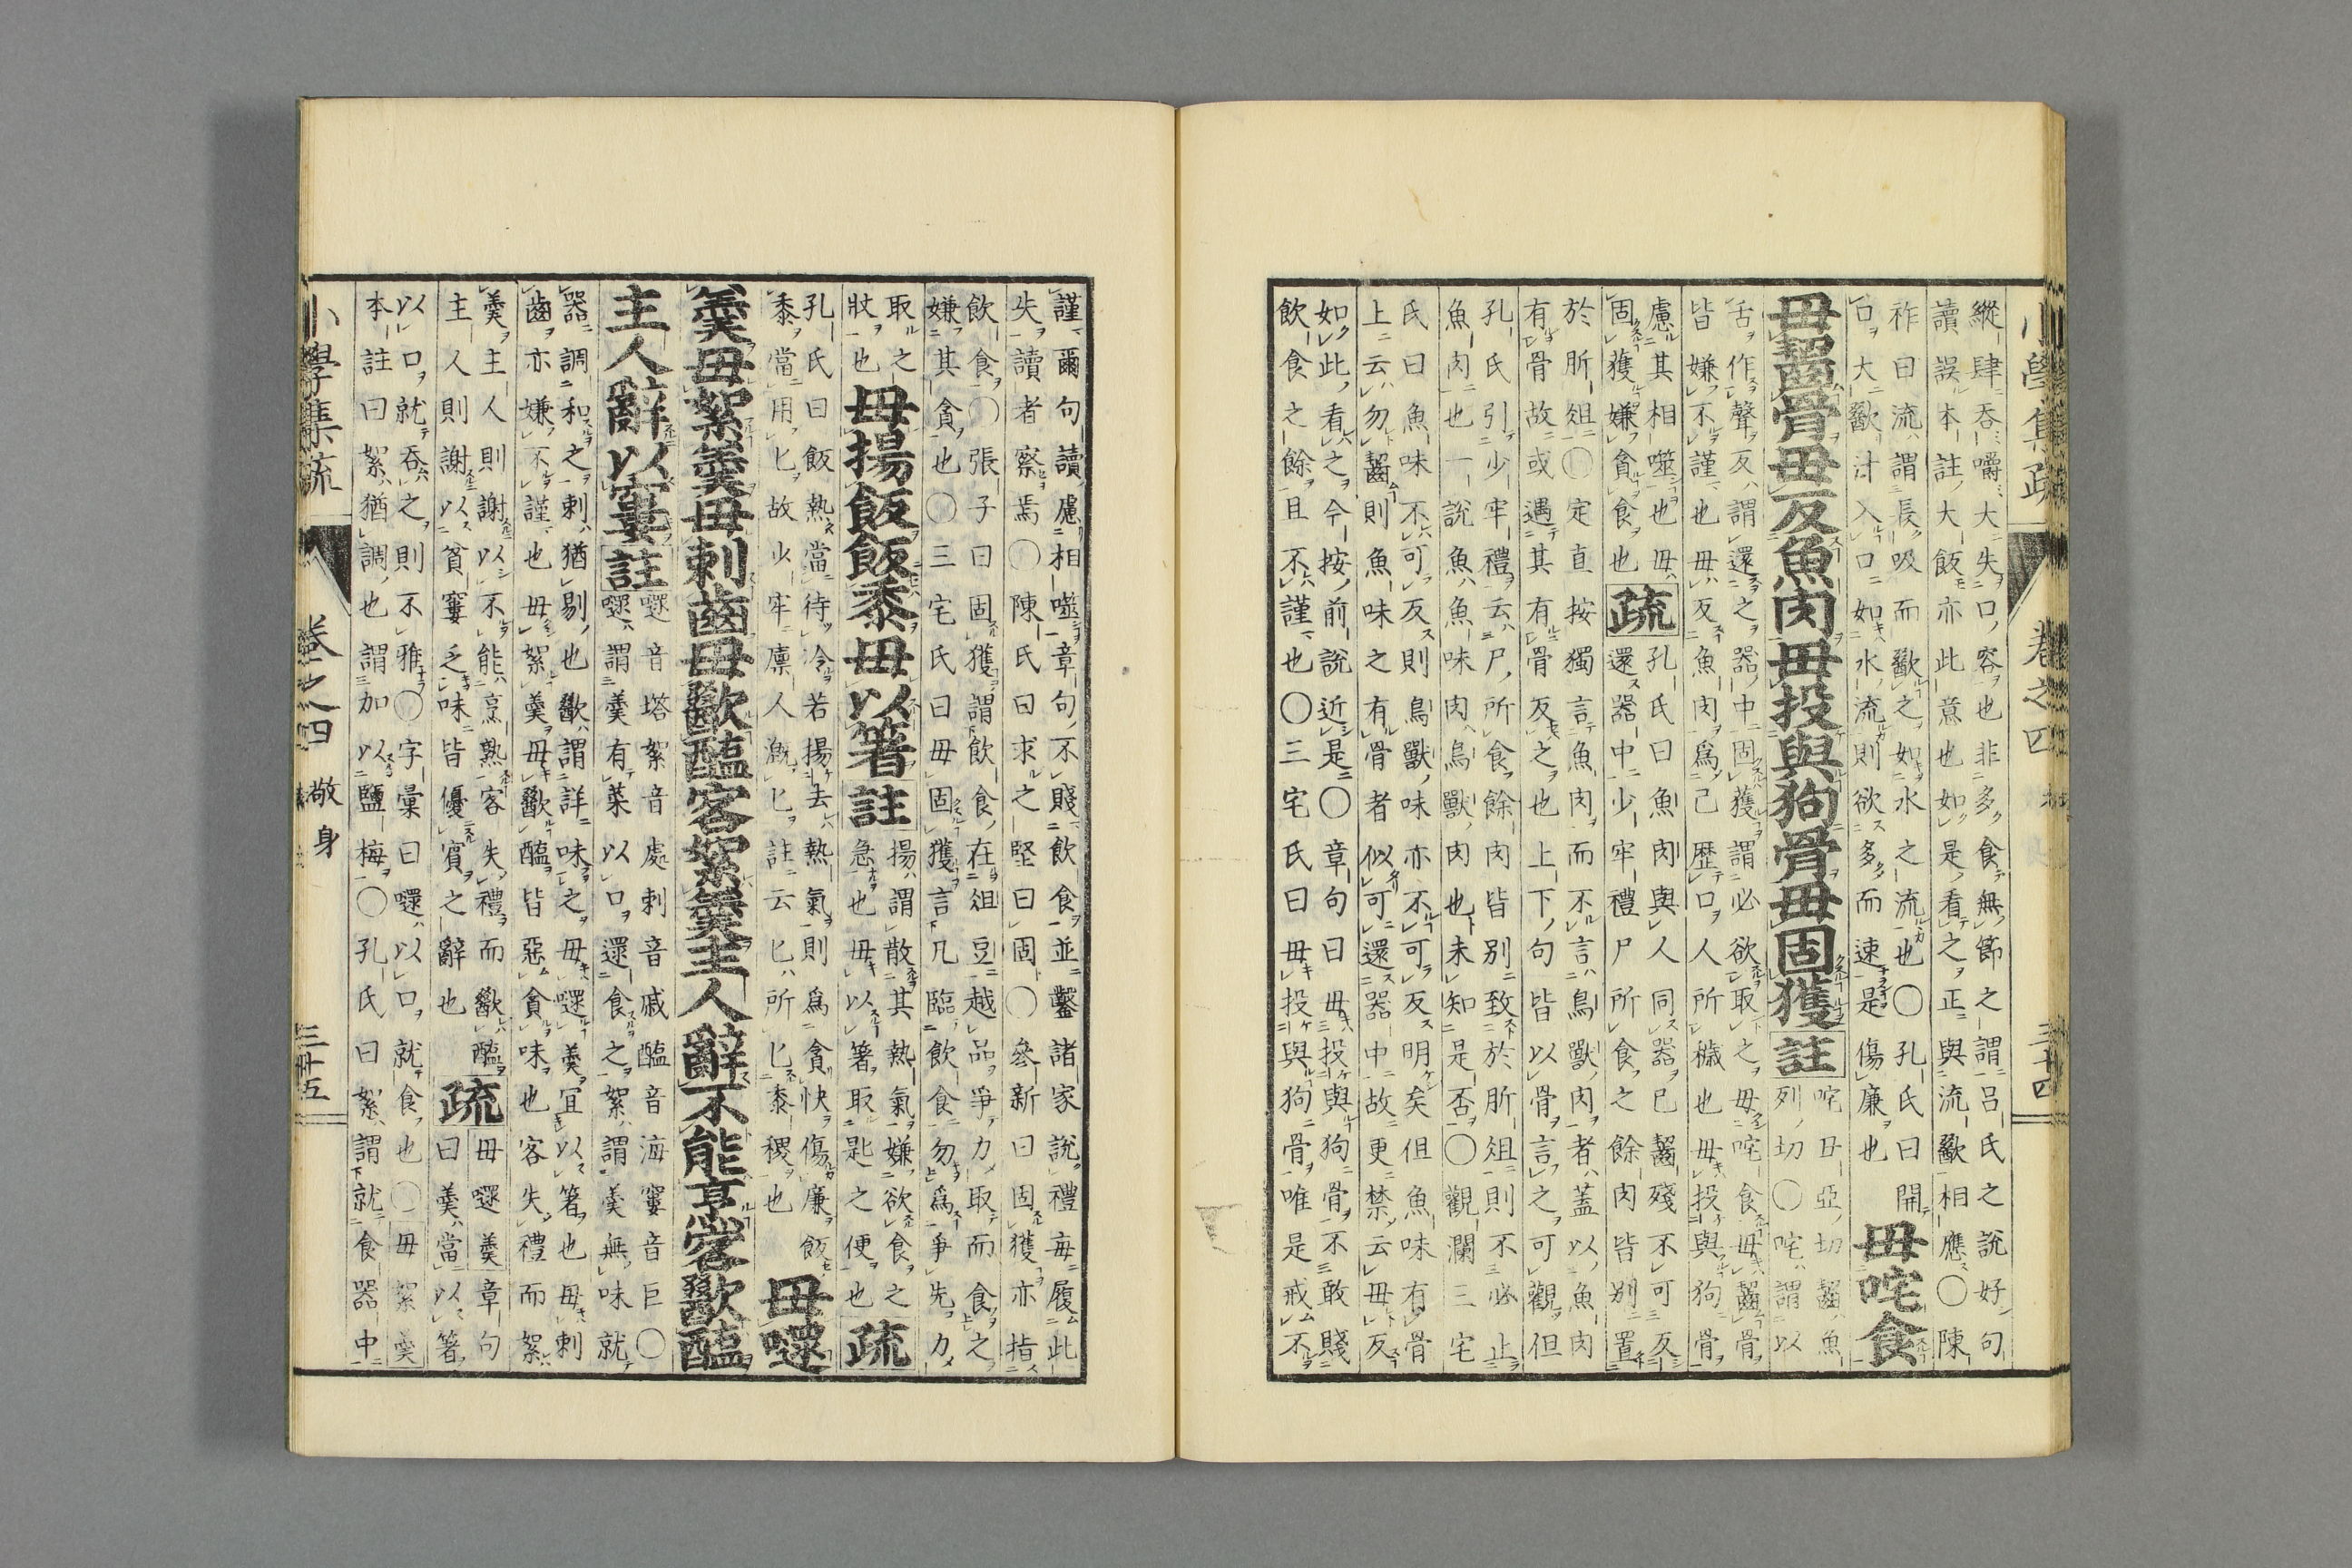 小學集疏 卷之四 三十四
縱肆吞嚼大失口容也非多食無節之謂呂氏之說好句
讀誤本註大飯亦此意也如是看之正與流歠相應〇陳
祚曰流謂長吸而歠之如水之流也〇孔氏曰開
口大歠汁入口如水流則欲多而速是傷廉也
毋咤食
毋齧骨毋反魚肉毋投與狗骨毋固獲註
咤丑亞切齧魚
列切〇咤謂以
舌作聲反謂還之器中固獲謂必欲取之毋咤食毋齧骨
皆嫌不謹也毋反魚肉爲己歷口人所穢也毋投與狗骨
慮其相噬也毋
固獲嫌貪食也
疏
孔氏曰魚肉與人同器已齧殘不可反
還器中少牢禮尸所食之餘肉皆别置
於肵俎〇定直按獨言魚肉而不言鳥獸肉者蓋以魚肉
有骨故或遇其有骨反之也上下句皆以骨言之可觀但
孔氏引少牢禮云尸所食餘肉皆别致於肵俎則不必止
魚肉也一說魚魚味肉鳥獸肉也未知是否〇觀瀾三宅
氏曰魚味不可反則鳥獸味亦不可反明矣但魚味有骨
上云勿齧則魚味之有骨者似可還器中故更禁云毋反
如此看之今按前說近是〇章句曰毋投與狗骨不敢賤
飲食之餘且不謹也〇三宅氏曰毋投與狗骨唯是戒不
謹爾句讀慮相噬章句不賤飲食並鑿諸家說禮每履此
失讀者察焉〇陳氏曰求之堅曰固〇參新曰固獲亦指
飲食〇張子曰固獲謂飲食在俎豆越品爭力取而食之
嫌其貪也〇三宅氏曰毋固獲言凡臨飲食勿爲爭先力
取之
狀也
毋揚飯飯黍毋以箸註
揚謂散其熱氣嫌欲食之
急也毋以箸取匙之便也
疏
孔氏曰飯熱當待冷若揚去熱氣則爲貪快傷廉飯
黍當用匕故少牢廩人漑匕註云匕所匕黍稷也
毋嚃
羹毋絮羹毋刺齒毋歠醢客絮羹主人辭不能亨客歠醢
主人辭以窶註
嚃音塔絮音處刺音戚醢音海窶音巨〇
嚃謂羹有菜以口還食之絮謂羹無味就
器調和之刺猶剔也歠謂詳味之毋嚃羹宜以箸也毋刺
齒亦嫌不謹也毋絮羹毋歠醢皆惡貪味也客失禮而絮
羹主人則謝以不能烹熟客失禮而歠醢
主人則謝以貧窶乏味皆優賓之辭也
疏
毋嚃羹章句
曰羹當以箸
以口就吞之則不雅〇字彙曰嚃以口就食也〇毋絮羹
本註曰絮猶調也謂加以鹽梅〇孔氏曰絮謂就食器中
小學集疏 卷之四 敬身 三十五